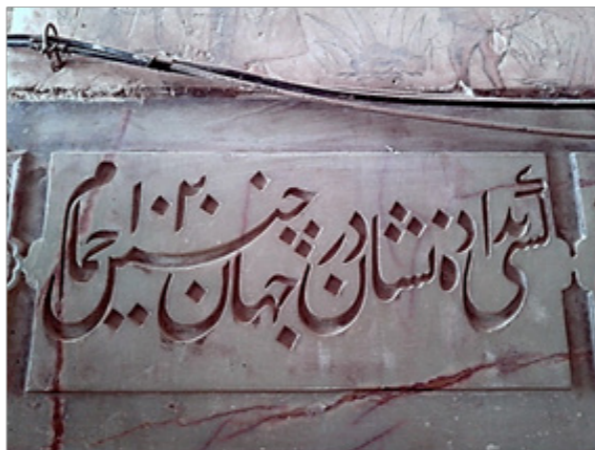 کسی نداده نشان در جهان چنین حمام ۱۰۲۰